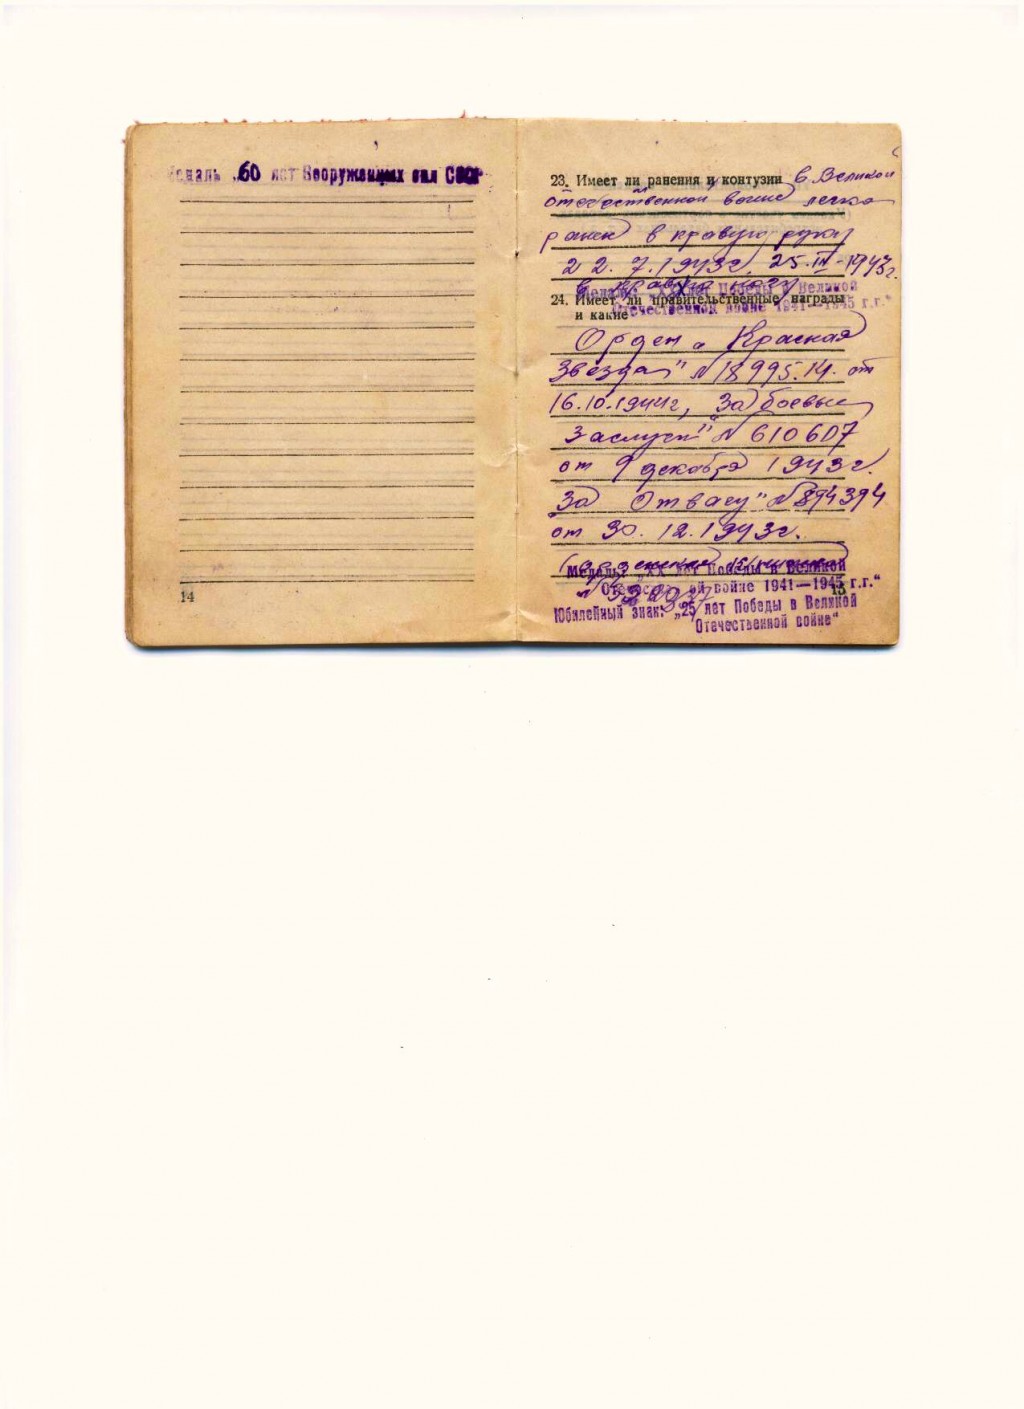 Медаль „60 лет Вооруженных сил СССР"
14
23. Имеет ли ранения и контузии в Великой
отечественной войне легко
ранен в правую руку
22.7.1943г. 25.IX-1943г.
в правую ногу
Медаль: "XX лет Победы в Великой
Отечественной войне 1941—1945 г.г."
24. Имеет ли правительственные награды
и какие
Орден „Красная
Звезда" №1899514. от
16.10.1944г, „За боевые
заслуги" № 610607
от 9 декабря 1943г.
„За Отвагу" № 894394
от 30.12.1943г.
Медаль: „XX лет Победы в Великой
Отечественной войне 1941—1945 г.г."
15
Юбилейный знак: „25 лет Победы в Великой
Отечественной войне"